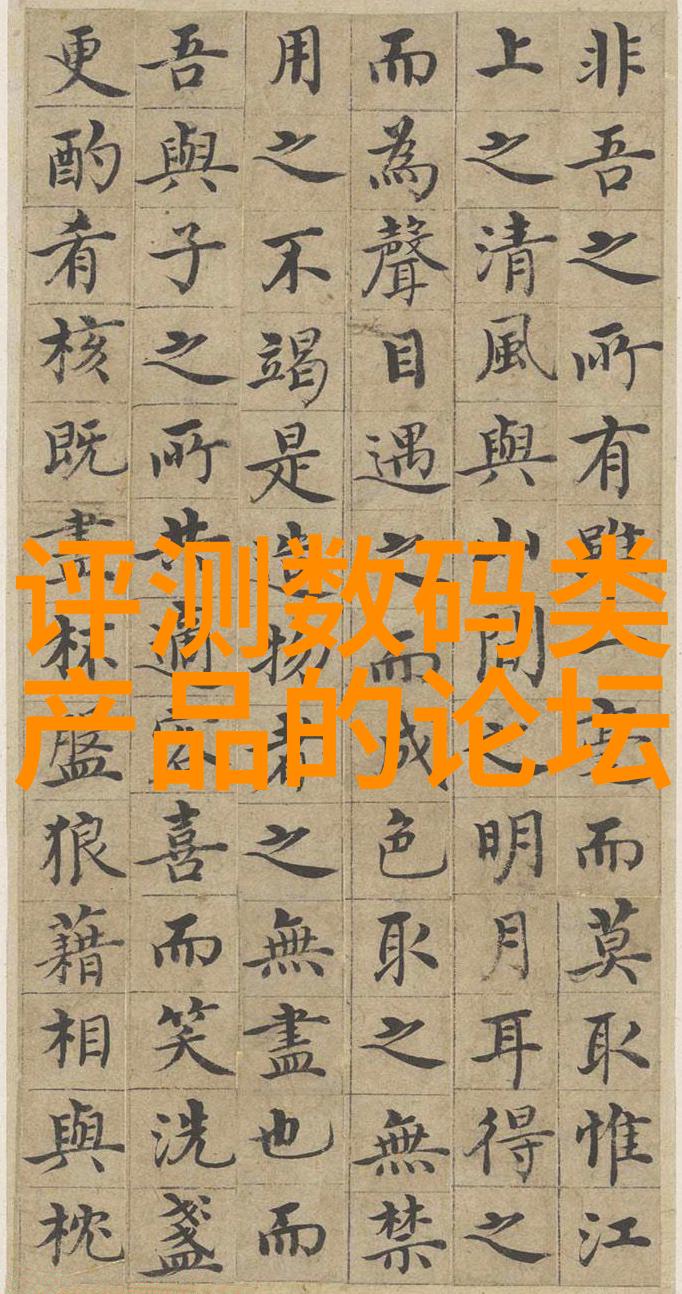 非吾之所有雖一毫而莫取惟江
上之清風與山間之明月耳得之
而為聲目遇之而成色取之無禁
用之不竭是造物者之無盡也而
吾與子之所共適客喜而笑洗盞
更酌肴核既盡杯盤狼藉相與枕
评测数码类
产品的论坛